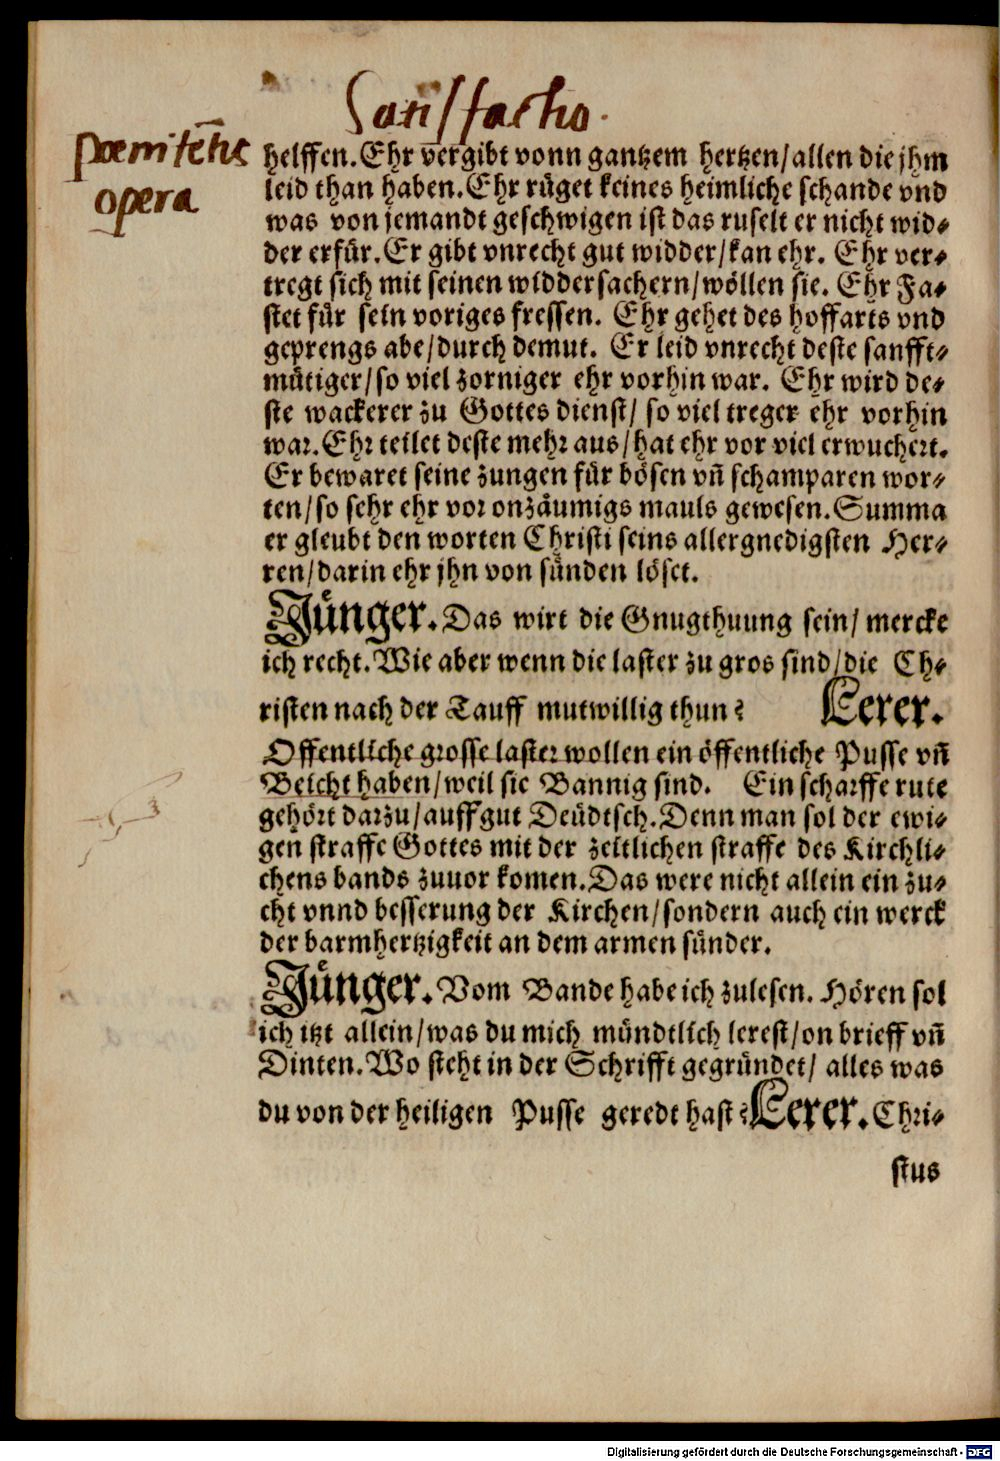 Satisfactio.
pœnitētiæ
opera
helffen. Ehr vergibt vonn gantzem hertzen/ allen die jhm
leid than haben. Ehr rüget keines heimliche schande vnd
was von jemandt geschwigen ist das ruselt er nicht wid⸗
der erfür. Er gibt vnrecht gut widder/ kan ehr. Ehr ver⸗
tregt sich mit seinen widdersachern/ wöllen sie. Ehr Fa⸗
stet für sein voriges fressen. Ehr gehet des hoffarts vnd
geprengs abe/ durch demut. Er leid vnrecht deste sanfft⸗
mütiger/ so viel zorniger ehr vorhin war. Ehr wird de⸗
ste wackerer zu Gottes dienst/ so viel treger ehr vorhin
war. Ehr teilet deste mehr aus/ hat ehr vor viel erwuchert.
Er bewaret seine zungen für bösen vñ schamparen wor⸗
ten/ so sehr ehr vor onzäumigs mauls gewesen. Summa
er gleubt den worten Christi seins allergnedigsten Her⸗
ren/ darin ehr jhn von sünden löset.
Jünger. Das wirt die Gnugthuung sein/ mercke
ich recht. Wie aber wenn die laster zu gros sind/ die Ch⸗
risten nach der Tauff mutwillig thun? Lerer.
Offentliche grosse laster wollen ein öffentliche Pusse vñ
Beicht haben/ weil sie Bannig sind. Ein scharffe rute
gehört darzu/ auff gut Deüdtsch. Denn man sol der ewi⸗
gen straffe Gottes mit der zeitlichen straffe des Kirchli⸗
chens bands zuuor komen. Das were nicht allein ein zu⸗
cht vnnd besserung der Kirchen/ sondern auch ein werck
der barmhertzigkeit an dem armen sünder.
Jünger. Vom Bande habe ich zulesen. Hören sol
ich itzt allein/ was du mich mündtlich lerest/ on brieff vñ
Dinten. Wo steht in der Schrifft gegründet/ alles was
du von der heiligen Pusse geredt hast? Lerer. Chri⸗
stus
Digitalisierung gefördert durch die Deutsche Forschungsgemeinschaft - DFG